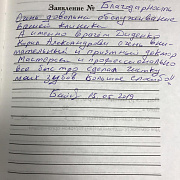 Заявление № Благодарность
Очень довольна обслуживание
Вашей клиники
А именно врачом Диденко
Кирил Александрович очень вни-
мательный и приятный доктор
Мастерски и профессионально
все быстро сделал чистку
моих зубов Большое спасибо!!
15.05.2019